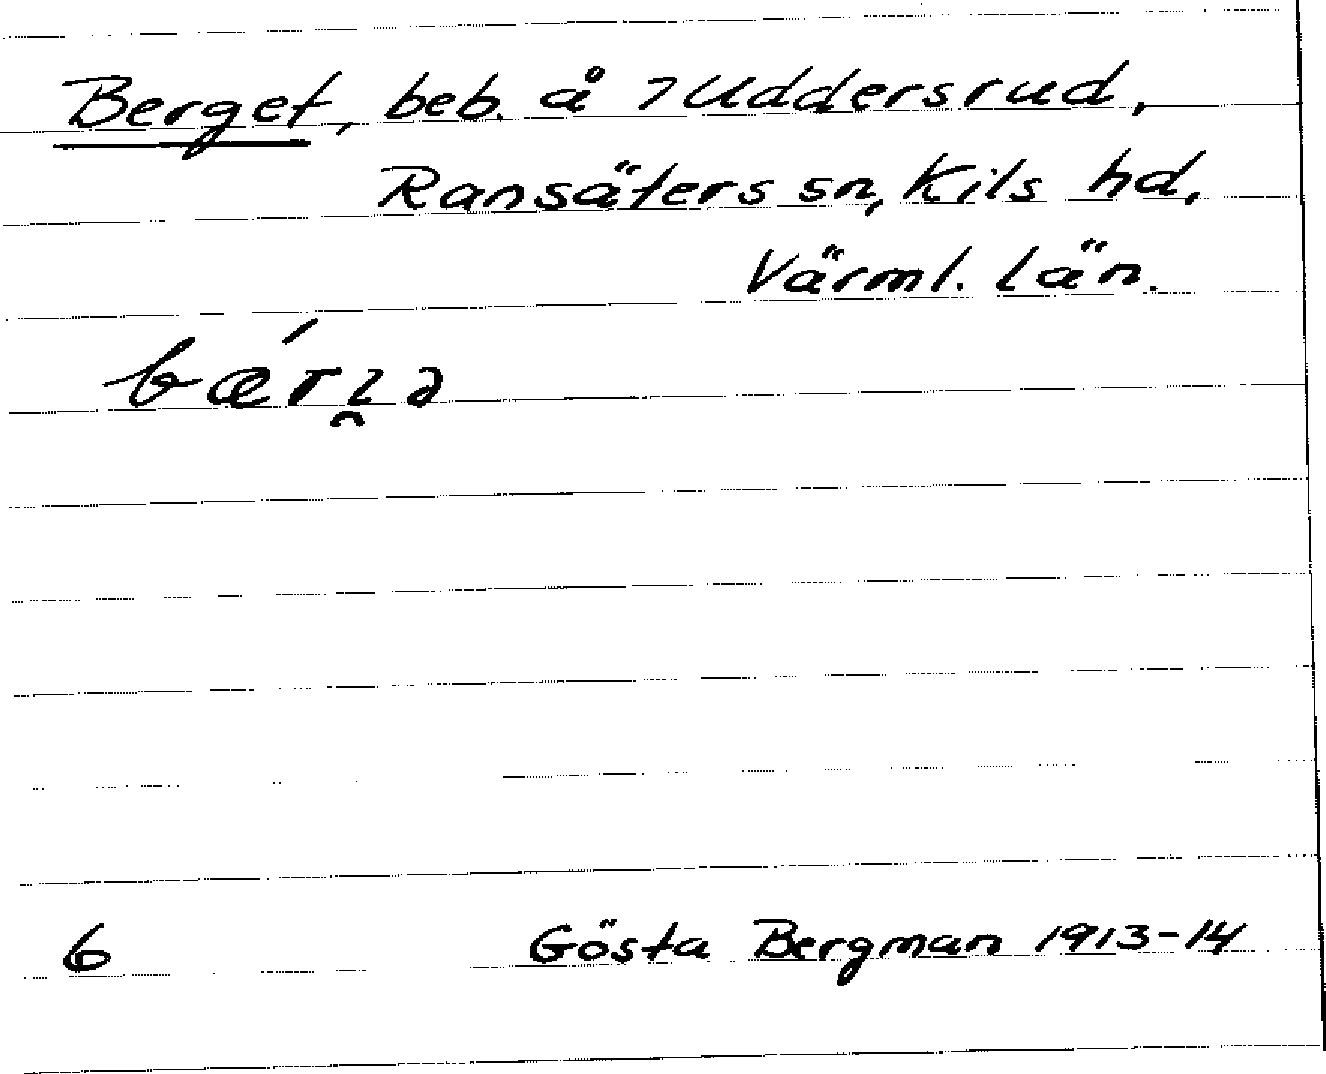 Berget, beb. å 7 Uddersrud,
Ransäters sn, Kils hd,
Värml. län.
bǽrı̯ə
6 Gösta Bergman 1913-14